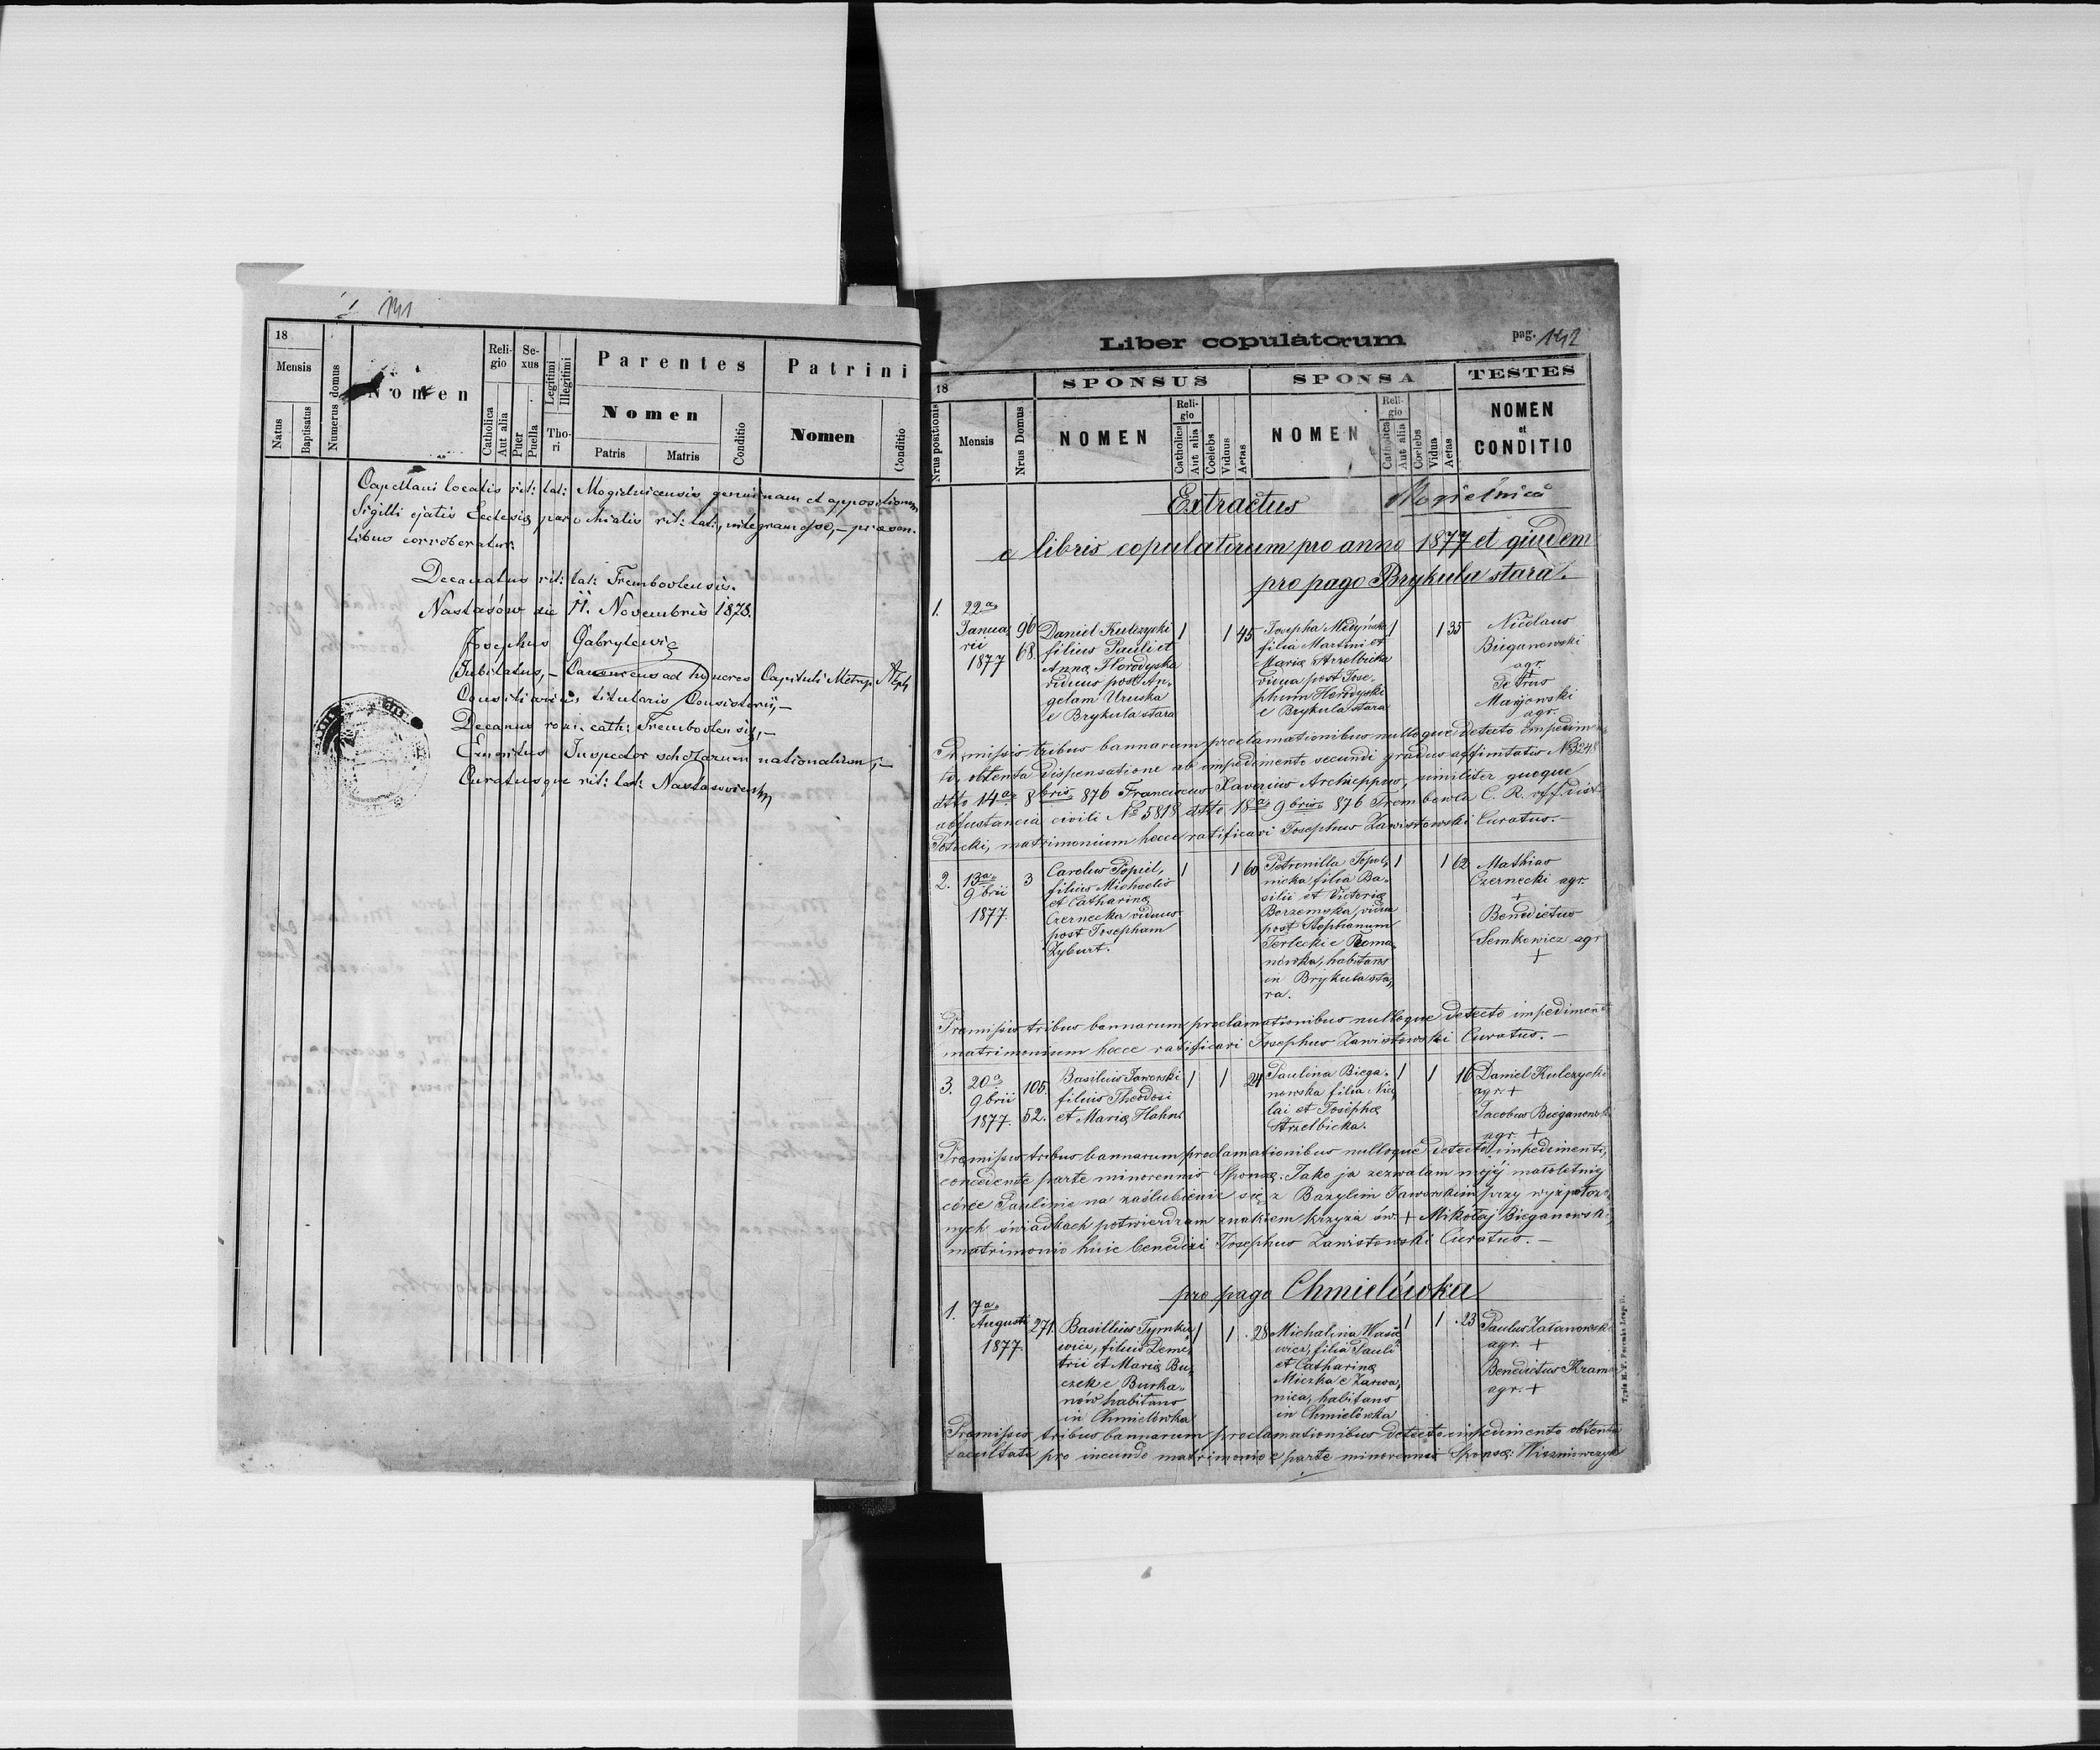 141
18
Mensis
Natus
Baptisatus
Numerus domus
Nomen
Religio
Catholica
Aut alia
Sexus
Puer
Puella
Legitimi
Illegitimi
Thori
Parentes
Nomen
Patris
Matris
Conditio
Patrini
Nomen
Conditio
Capellani localis rit: lat: Mogielnicensis genuinam et appositionem
Sigilli ejatis Ecclesiæ parochialis rit: lat:, integram esse, – præsen-
tibus corroboratur.
Decanatus rit: lat: Trembovlensis.
Nastasów die 11. Novembris 1878.
Josephus Gabrylewicz
Jubilatus, – Canonicus ad honores Capituli Metrop.
Consiliarius titularis Consistorii, –
Decanus rom. cath: Trembovlensis, –
Emeritus Inspector scholarum nationalium, –
Curatusque rit: lat: Nastasoviensis
Liber copulatorum
pag. 142
18
Nrus positionis
Mensis
Nrus Domus
SPONSUS
NOMEN
Religio
Catholica
Aut alia
Coelebs
Viduus
Aetas
SPONSA
NOMEN
Religio
Catholica
Aut alia
Coelebs
Vidua
Aetas
TESTES
NOMEN
et
CONDITIO
Extractus Mogielnica
e libris copulatorum pro anno 1877 et quidem
pro pago Brykula stara.
1.
22a
Janua
rii
1877
96
68.
Daniel Kulczycki
filius Pauli et
Annæ Horodyska
viduus post An-
gelam Uruska
e Brykula stara
1 1 45
Josepha Medyńska
filia Martini et
Mariæ Strzelbicka
vidua post Jose-
phum Horodyski
e Brykula stara
1 1 35
Nicolaus
Bieganowski
agr.
Petrus
Maryowski
agr.
Præmissis tribus bannarum proclamationibus nulloque detecto impedimen-
to, obtenta dispensatione ab impedimento secundi gradus affinitatis No 3248
dtto 14a 8bris 876 Franciscus Xaverius Archieppus, similiter quoque
ab instancia civili No 5818 dtto 18a 9bris 876 Trembowla C. R. off. dist.
Potocki, matrimonium hocce ratificavi Josephus Zawistowski Curatus. –
2.
13a
9brii
1877.
3
Carolus Popiel,
filius Michaelis
et Catharinæ
Czernecka viduus
post Josepham
Zyburt.
1 1 60
Petronilla Topol,
nicka filia Ba-
silii et Victoriæ
Borzemska, vidua
post Stephanum
Terlecki e Roma-
nówka, habitans
in Brykula sta,
ra.
1 1 62
Mathias
Czernecki agr.
+
Benedictus
Semkowicz agr
+
Præmissis tribus bannarum proclamationibus nulloque detecto impedimento
matrimonium hocce ratificavi Josephus Zawistowski Curatus. –
3.
20a
9brii
1877.
105.
52.
Basilius Jaworski
filius Theodosi
et Mariæ Hahn
1 1 24
Paulina Biega-
nowska filia Nico
lai et Josephæ
Strzelbicka.
1 1 16
Daniel Kulczycki
agr. +
Jacobus Bieganowski
agr. +
Præmissis tribus bannarum proclamationibus nulloque detecto impedimento,
concedente parte minorennis Sponsæ: Jako ja zezwalam mojéj małoletniej
córce Paulinie na zaślubienie się z Bazylim Jaworskim przy wyżpołożo-
nych świadkach potwierdzam znakiem krzyża św. + Mikołaj Bieganowski,
matrimonio huic benedixi Josephus Zawistowski Curatus. –
pro pago Chmielówka
1.
7a
Augusti
1877.
271.
Basillius Tymkie
wicz, filius Deme,
trii et Mariæ Bu,
czek e Burka-
nów habitans
in Chmielówka
1 1 28
Michalina
wicz, filia Pauli
et Catharinæ
Miczka e Zarwa,
nica, habitans
in Chmielówka
1 1 23
Paulus Załanowski
agr. +
Benedictus Kram
agr. +
Præmissis tribus bannarum proclamationibus detecto impedimento obtenta
facultate pro ineundo matrimonio e parte minorennis Sponsæ: Wiszniowczyk